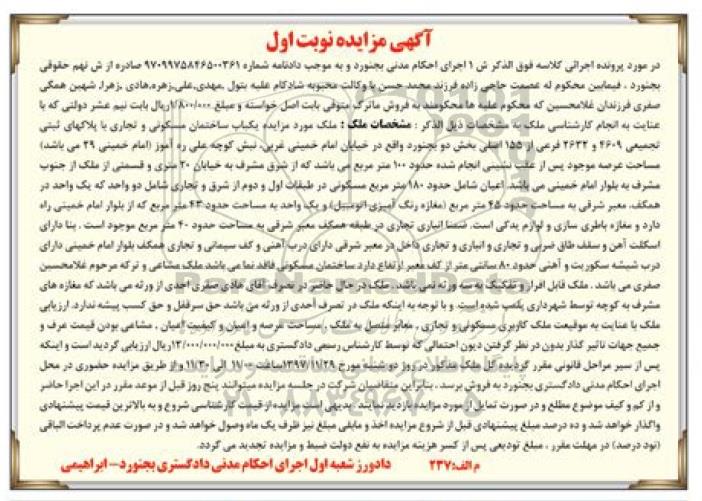 آگهی مزایده نوبت اول
در مورد پرونده اجرائی کلاسه فوق الذکر ش ۱ اجرای احکام مدنی بجنورد و به موجب دادنامه شماره ۹۷۰۹۹۷۵۸۴۶۵۰۰۳۶۱ صادره از ش نهم حقوقی
بجنورد ، فیمابین محکوم له عصمت حاجی زاده فرزند محمد حسن با وکالت محبوبه شادکام علیه بتول ,مهدی,علی,زهره,هادی ,زهرا, شهین همگی
صفری فرزندان غلامحسین که محکوم علیه ها محکومند به فروش ماترک متوفی بابت اصل خواسته و مبلغ ۱/۸۰۰/۰۰۰ریال بابت نیم عشر دولتی که با
عنایت به انجام کارشناسی ملک به مشخصات ذیل الذکر : مشخصات ملک : ملک مورد مزایده یکباب ساختمان مسکونی و تجاری با پلاکهای ثبتی
تجمیعی ۴۶۰۹ و ۲۶۲۲ فرعی از ۱۵۵ اصلی بخش دو بجنورد واقع در خیابان امام خمینی غربی، نبش کوچه علی ره آموز (امام خمینی ۲۹ می باشد)
مساحت عرصه موجود پس از عقب نشینی انجام شده حدود ۱۰۰ متر مربع می باشد که از شرق مشرف به خیابان ۲۰ متری و قسمتی از ملک از جنوب
مشرف به بلوار امام خمینی می باشد. اعیان شامل حدود ۱۸۰ متر مربع مسکونی در طبقات اول و دوم از شرق و تجاری شامل دو واحد که یک واحد در
همکف، معبر شرقی به مساحت حدود ۴۵ متر مربع (مغازه رنگ آمیزی اتومبیل) و یک واحد به مساحت حدود ۴۳ متر مربع که از بلوار امام خمینی راه
دارد و مغازه باطری سازی و لوازم یدکی است. ضمنا انباری تجاری در طبقه همکف معبر شرقی به مساحت حدود ۴۰ متر مربع موجود است . بنا دارای
اسکلت آهن و سقف طاق ضربی و تجاری و انباری و تجاری داخل در معبر شرقی دارای درب آهنی و کف سیمانی و تجاری همکف بلوار امام خمینی دارای
درب شیشه سکوریت و آهنی حدود ۸۰ سانتی متر از کف معبر ارتفاع دارد ساختمان مسکونی فاقد نما می باشد ملک مشاعی و ترکه مرحوم غلامحسین
صفری می باشد . ملک قابل افراز و تفکیک به نسبت ورثه نمی باشد . ملک در حال حاضر در تصرف آقای هادی صفری احدی از ورثه می باشد که مغازه های
مشرف به کوچه توسط شهرداری پلمب شده است. و با توجه به اینکه ملک در تصرف أحدی از ورثه می باشد حق سرقفل و حق کسب پیشه ندارد. ارزیابی
ملک با عنایت به موقیعت ملک کاربری مسکونی و تجاری ، معابر متصل به ملک ، مساحت عرصه و اعیان و کیفیت اعیان ، مشاعی بودن قیمت عرف و
جمیع جهات تاثیر گذار بدون در نظر گرفتن دیون احتمالی که توسط کارشناس رسمی دادگستری به مبلغ ۱۲/۰۰۰/۰۰۰/۰۰۰ریال ارزیابی گردید است و اینکه
پس از سیر مراحل قانونی مقرر گردیده کل ملک مذکور در روز دو شنبه مورخ ۱۳۹۷/۱۱/۲۹ساعت ۱۱/۰۰ الی ۱۱/۳۰ و از طریق مزایده حضوری در محل
اجرای احکام مدنی دادگستری بجنورد به فروش برسد . بنابراین متقاضیان شرکت در جلسه مزایده میتوانند پنج روز قبل از موعد مقرر در این اجرا حاضر
و از کم و کیف موضوع مطلع و در صورت تمایل از مورد مزایده بازدید نمایند . بدیهی است مزایده از قیمت کارشناسی شروع و به بالاترین قیمت پیشنهادی
واگذار خواهد شد و ده درصد مبلغ پیشنهادی قبل از شروع مزایده اخذ و مابقی مبلغ نیز ظرف یک ماه وصول خواهد شد و در صورت عدم پرداخت الباقی
(نود درصد) در مهلت مقرر ، مبلغ تودیعی پس از کسر هزینه مزایده به نفع دولت ضبط و مزایده تجدید می گردد.
م الف:۲۳۷ دادورز شعبه اول اجرای احکام مدنی دادگستری بجنورد- ابراهیمی